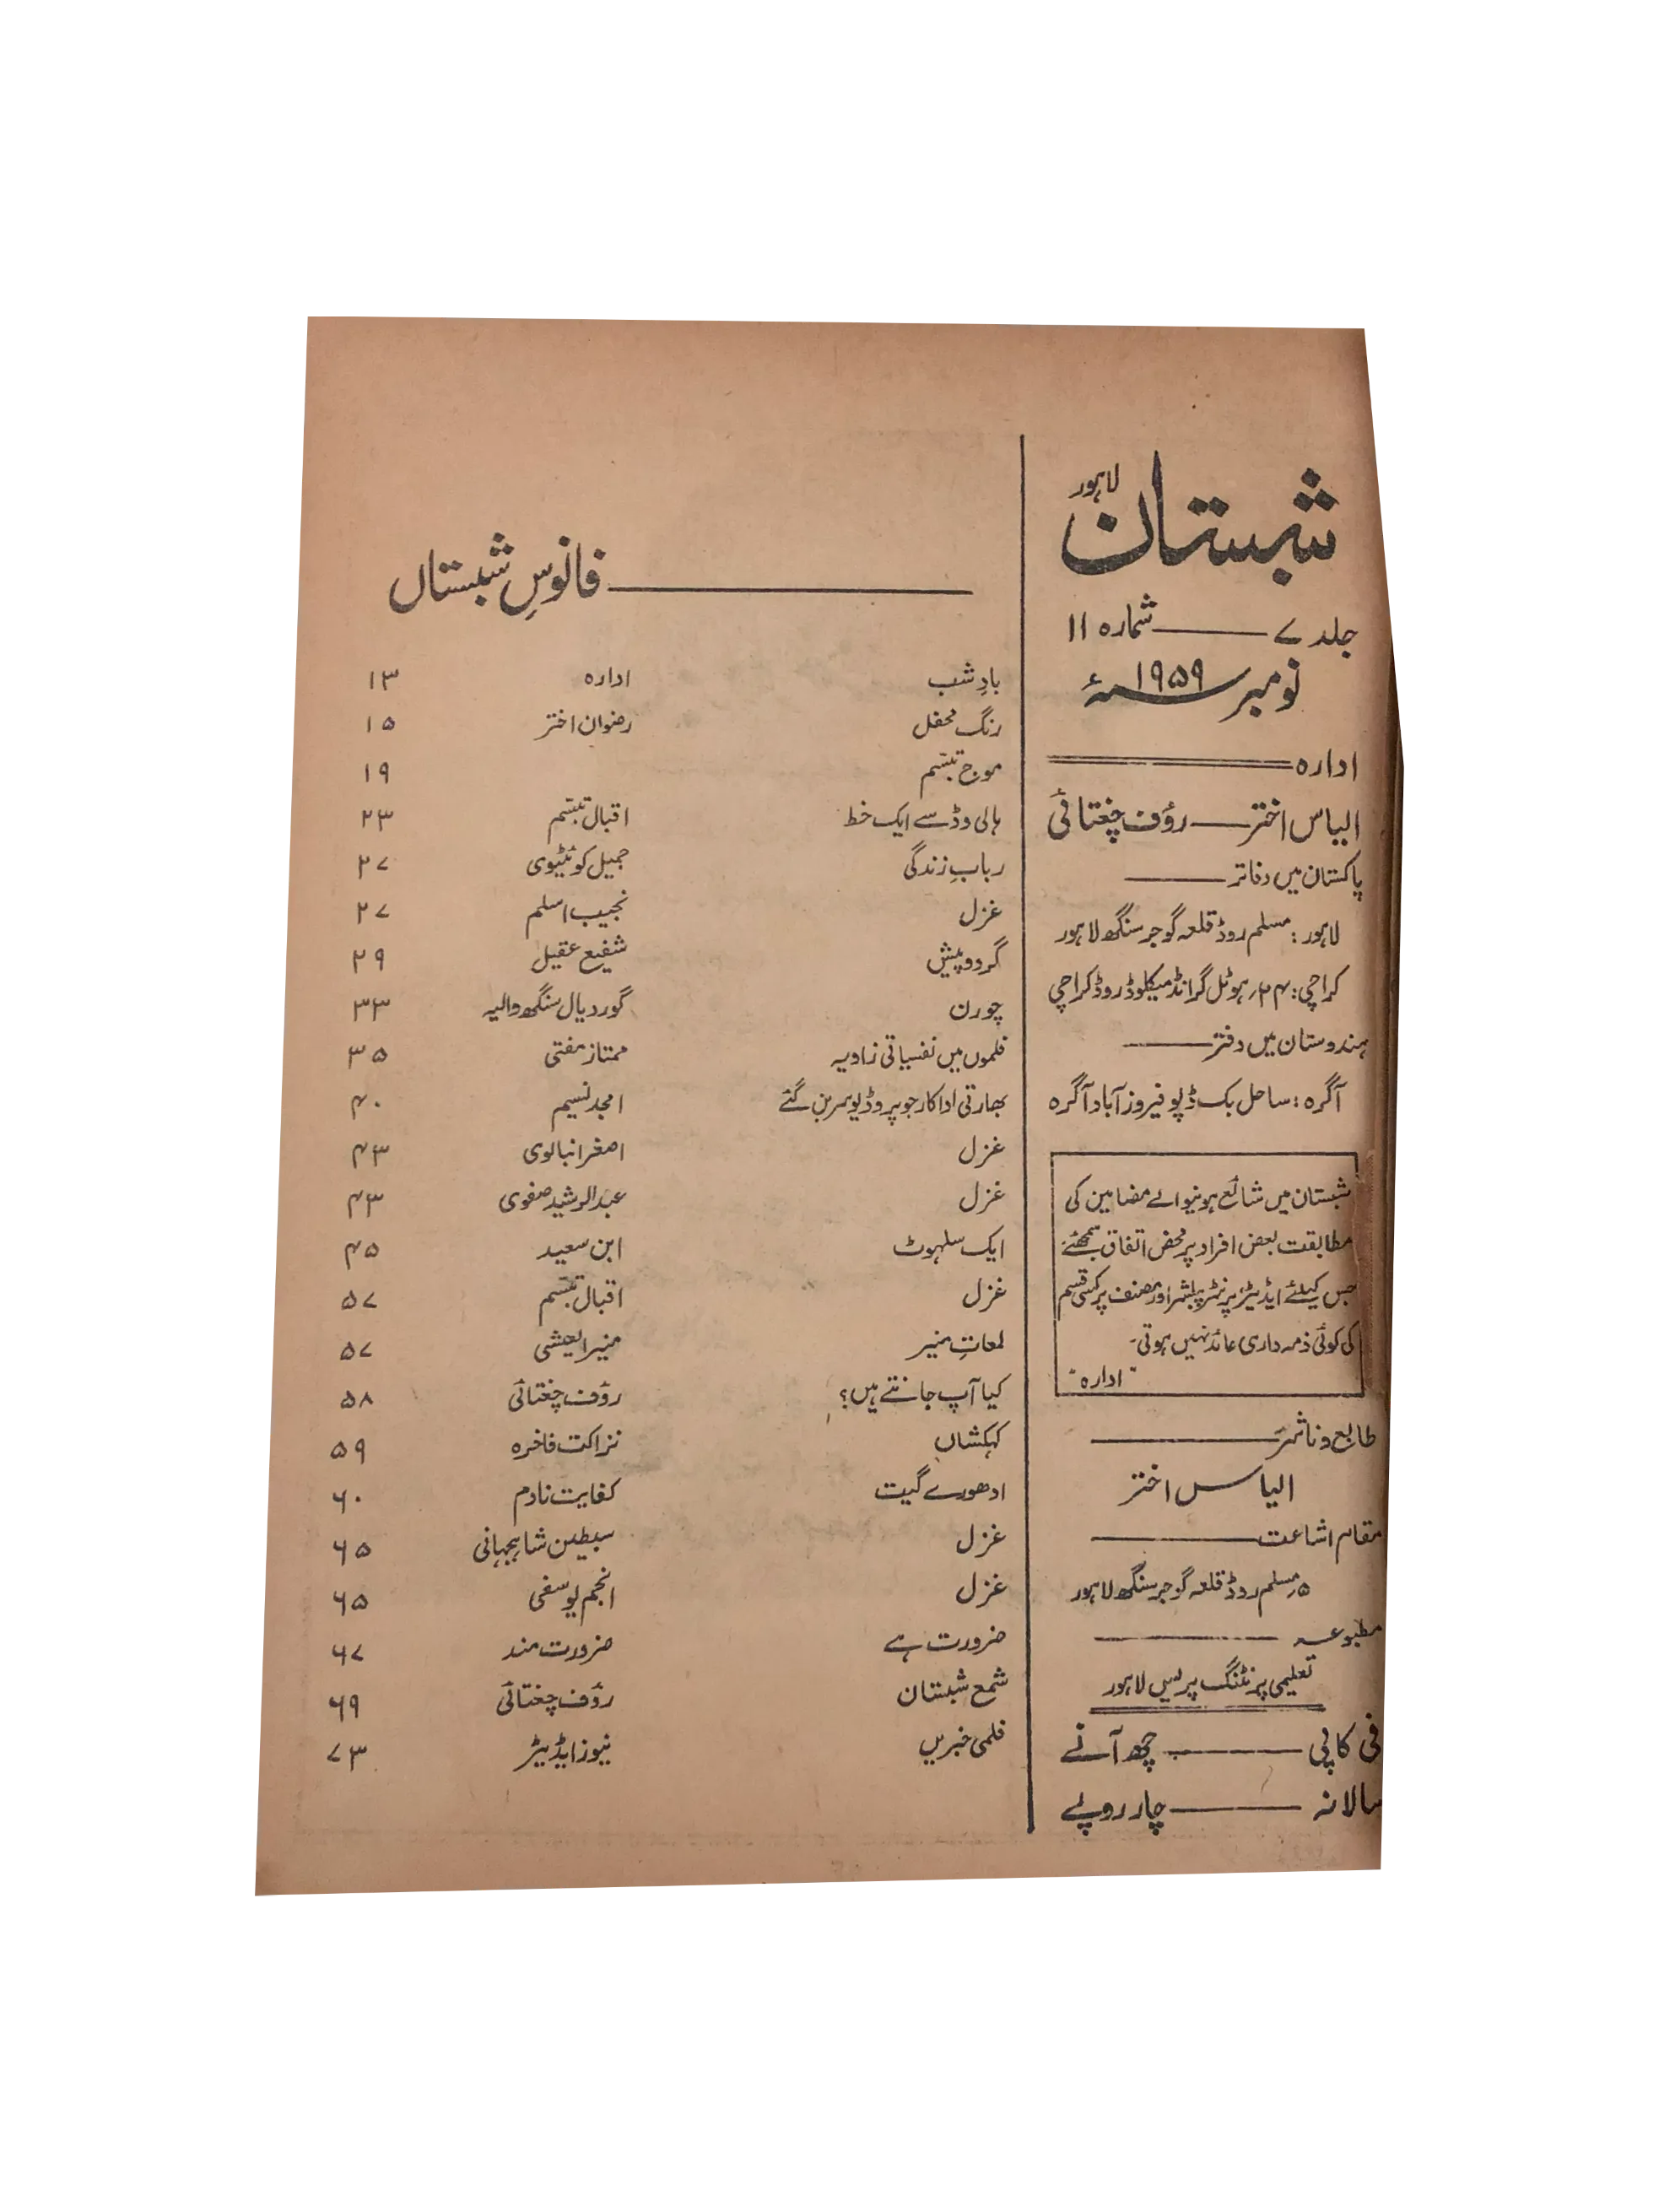 شبستان لاہور
جلد ۷ — شمارہ ۱۱
نومبر ۱۹۵۹ء
ادارہ
الیاس اختر — رؤف چغتائی
پاکستان میں دفاتر —
لاہور: مسلم روڈ قلعہ گوجر سنگھ لاہور
کراچی: ۲۴، ہوٹل گرانڈ میکلوڈ روڈ کراچی
ہندوستان میں دفتر —
آگرہ: ساحل بک ڈپو فیروز آباد آگرہ
شبستان میں شائع ہونیوالے مضامین کی
مطابقت بعض افراد پر محض اتفاق سمجھئے
جس کیلئے ایڈیٹر، پرنٹر پبلشر اور مصنف پر کسی قسم
کی کوئی ذمہ داری عائد نہیں ہوتی۔
"ادارہ"
طابع و ناشر —
الیاس اختر
مقام اشاعت —
۵، مسلم روڈ قلعہ گوجر سنگھ لاہور
مطبوعہ —
تعلیمی پرنٹنگ پریس لاہور
فی کاپی — چھ آنے
سالانہ — چار روپے
فانوسِ شبستاں
بادِ شب ادارہ ۱۳
رنگ محفل رضوان اختر ۱۵
موج تبسّم ۱۹
ہالی وڈ سے ایک خط اقبال تبسّم ۲۳
ربابِ زندگی جمیل کوئٹیوی ۲۷
غزل نجیب اسلم ۲۷
گردوپیش شفیع عقیل ۲۹
چورن گوردیال سنگھ والیہ ۳۳
فلموں میں نفسیاتی زاویہ ممتاز مفتی ۳۵
بھارتی اداکار جو پروڈیوسر بن گئے امجد نسیم ۴۰
غزل اصغر انبالوی ۴۳
غزل عبدالرشید صفوی ۴۳
ایک سلہوٹ ابن سعید ۴۵
غزل اقبال تبسّم ۵۷
لمعاتِ منیر منیر العیشی ۵۷
کیا آپ جانتے ہیں؟ رؤف چغتائی ۵۸
کہکشاں نزاکت فاخرہ ۵۹
ادھورے گیت کفایت نادم ۶۰
غزل سبطین شاہجہانی ۶۵
غزل انجم یوسفی ۶۵
ضرورت ہے ضرورت مند ۶۷
شمع شبستان رؤف چغتائی ۶۹
فلمی خبریں نیوز ایڈیٹر ۷۳